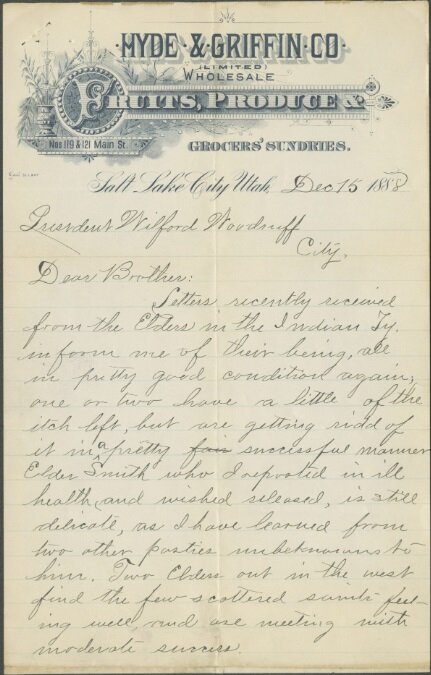 HYDE & GRIFFIN CO
(LIMITED)
WHOLESALE
FRUITS, PRODUCE &
Nos 119 & 121 Main St.
GROCERS' SUNDRIES.
Salt Lake City, Utah, Dec 15 1888
President Wilford Woodruff
City.
Dear Brother:
Letters recently received
from the Elders in the Indian Ty.
inform me of their being, all
in pretty good condition again;
one or two have a little of the
itch left, but are getting ridd of
it in a pretty fair successful manner
Elder Smith who I reported in ill
health, and wished released, is still
delicate, as I have learned from
two other parties unbeknowns to
him. Two Elders out in the west
find the few scattered saints feel-
ing well, and are meeting with
moderate success.